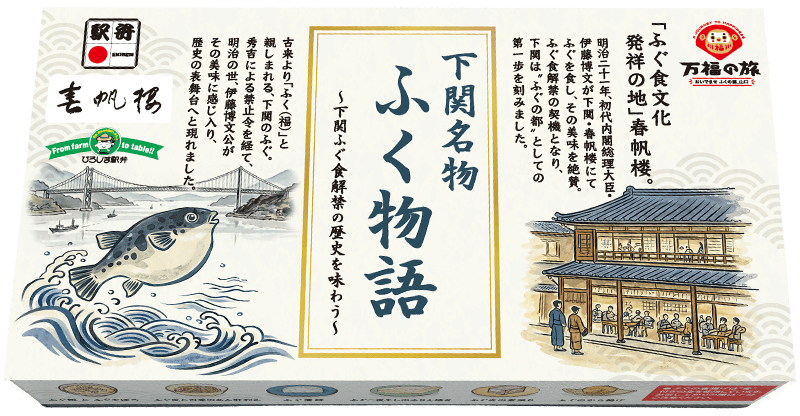 駅弁
EKIBEN
春帆楼
From farm to table!!
ひろしま駅弁
古来より「ふく(福)」と
親しまれる、下関のふぐ。
秀吉による禁止令を経て、
明治の世、伊藤博文公が
その美味に感じ入り、
歴史の表舞台へと現れました。
下関名物
ふく物語
～下関ふぐ食解禁の歴史を味わう～
A JOURNEY TO HAPPINESS
万福の旅
おいでませ ふくの国、山口
「ふぐ食文化
発祥の地」春帆楼。
明治二十一年、初代内閣総理大臣・
伊藤博文が下関・春帆楼にて
ふぐを食し、その美味を絶賛。
ふぐ食解禁の契機となり、
下関は“ふぐの都”としての
第一歩を刻みました。